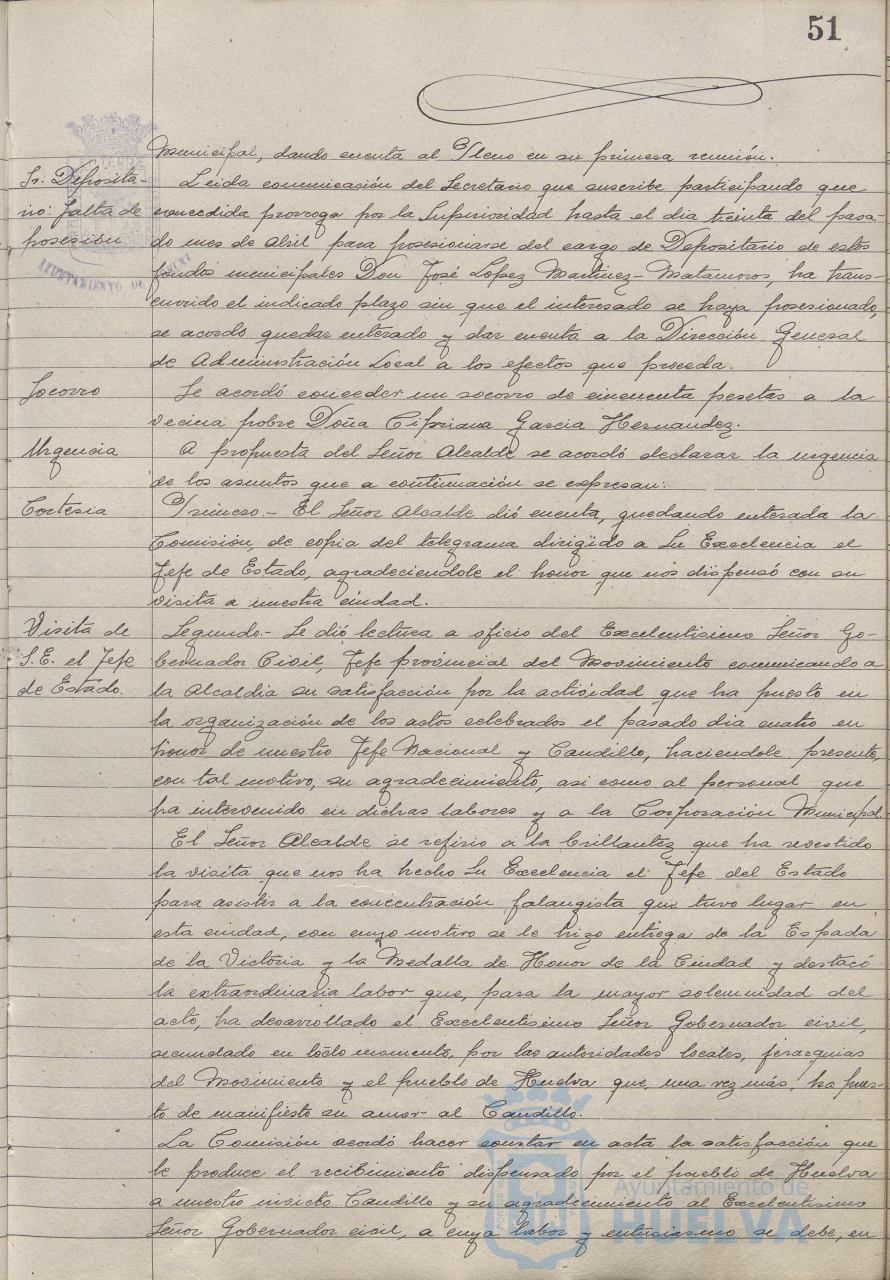 51
Municipal, dando cuenta al Pleno en su primera reunión.
Sr. Deposita-
rio: falta de
posesión
Leida comunicación del Secretario que suscribe participando que
concedida prorroga por la Superioridad hasta el dia treinta del pasa-
do mes de Abril para posesionarse del cargo de Depositario de estos
fondos municipales Don José Lopez Martinez-Matamoros, ha trans-
currido el indicado plazo sin que el interesado se haya posesionado,
se acordo quedar enterado y dar cuenta a la Dirección General
de Administración Local a los efectos que proceda.
Socorro
Se acordó conceder un socorro de cincuenta pesetas a la
vecina pobre Doña Cipriana Garcia Hernandez.
Urgencia
A propuesta del Señor Alcalde se acordó declarar la urgencia
de los asuntos que a continuación se expresan:
Cortesia
Primero.- El Señor Alcalde dió cuenta, quedando enterada la
Comisión, de copia del telegrama dirigido a Su Excelencia el
Jefe de Estado, agradeciendole el honor que nos dispensó con su
visita a nuestra ciudad.
Visita de
S.E. el Jefe
de Estado.
Segundo.- Se dió lectura a oficio del Excelentisimo Señor Go-
bernador Civil, Jefe provincial del Movimiento comunicando a
la Alcaldia su satisfacción por la actividad que ha puesto en
la organización de los actos celebrados el pasado dia cuatro en
honor de nuestro Jefe Nacional y Caudillo, haciendole presente,
con tal motivo, su agradecimiento, asi como al personal que
ha intervenido en dichas labores y a la Corporación Municipal.
El Señor Alcalde se refirio a la brillantez que ha revestido
la visita que nos ha hecho Su Excelencia el Jefe del Estado
para asistir a la concentración falangista que tuvo lugar en
esta ciudad, con cuyo motivo se le hizo entrega de la Espada
de la Victoria y la Medalla de Honor de la Ciudad y destacó
la extraordinaria labor que, para la mayor solemnidad del
acto, ha desarrollado el Excelentisimo Señor Gobernador civil,
secundado en todo momento, por las autoridades locales, jerarquias
del Movimiento y el pueblo de Huelva que, una vez más, ha pues-
to de manifiesto su amor al Caudillo.
La Comisión acordó hacer constar en acta la satisfacción que
le produce el recibimiento dispensado por el pueblo de Huelva
a nuestro invicto Caudillo y su agradecimiento al Excelentisimo
Señor Gobernador civil, a cuya labor y entusiasmo se debe, en
AYUNTAMIENTO DE
Ayuntamiento de
HUELVA